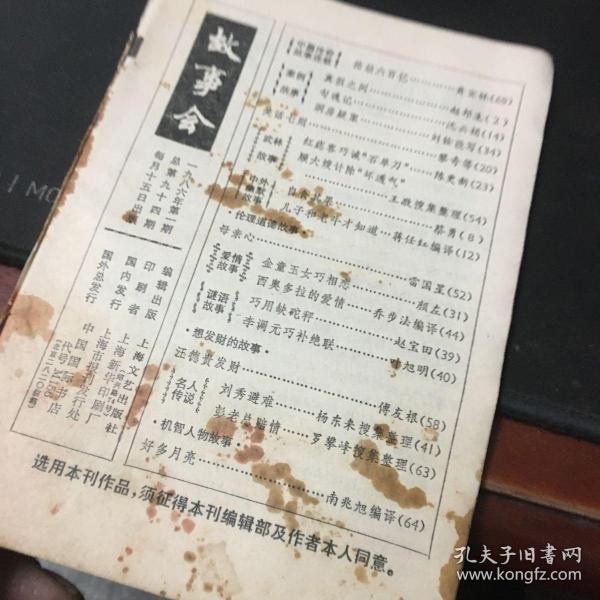 故事会
一九八六年第一期
总第九十四期
每月十五日出版
编辑出版 上海文艺出版社
印刷者 上海新华印刷厂
国内发行 上海市报刊发行处
国外总发行 中国国际书店
抢劫六百亿…………黄宣林(60)
案例故事
真假之间…………赵邦生(2)
匀魂记…………沈云娟(14)
洞房疑案…………刘钦德写(34)
笑话七则…………黎奇等(20)
武林故事
红菇寨巧诫“石单刀”……陈更新(23)
顾大嫂计除“坏透气”
……王敬搜集整理(54)
中外幽默故事
自食其果…………蔡勇(8)
儿子和老牛才知道…蒋任红编译(12)
·伦理道德故事·
母亲心…………雷国星(52)
爱情故事
金童玉女巧相恋…………颜左(31)
西奥多拉的爱情……乔步法编译(44)
谜语故事
巧用缺砣秤…………赵宝田(39)
李调元巧补绝联…………叶旭明(40)
·想发财的故事·
汪德贵发财…………傅友根(58)
名人传说
刘秀避难……杨东来搜集整理(41)
彭老总赔情……罗攀峰搜集整理(63)
·机智人物故事·
好多月亮…………南兆旭编译(64)
选用本刊作品，须征得本刊编辑部及作者本人同意。
孔夫子旧书网
www.kongfz.com